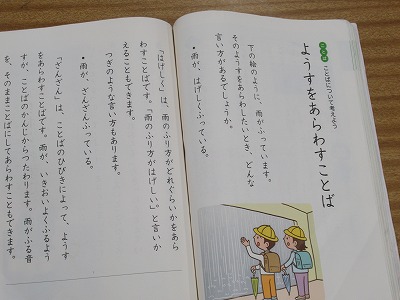 ことば
ことばについて考えよう
ようすをあらわすことば
下の絵のように、雨がふっています。
そのようすをあらわしたいとき、どんな
言い方があるでしょうか。
・雨が、はげしくふっている。
「はげしく」は、雨のふり方がどれぐらいかをあら
わすことばです。「雨のふり方がはげしい。」と言いか
えることもできます。
つぎのような言い方もあります。
・雨が、ざんざんふっている。
「ざんざん」は、ことばのひびきによって、ようす
をあらわすことばです。雨が、いきおいよくふるよう
すが、ことばのかんじからつたわります。雨がふる音
を、そのままことばにしてあらわすこともできます。